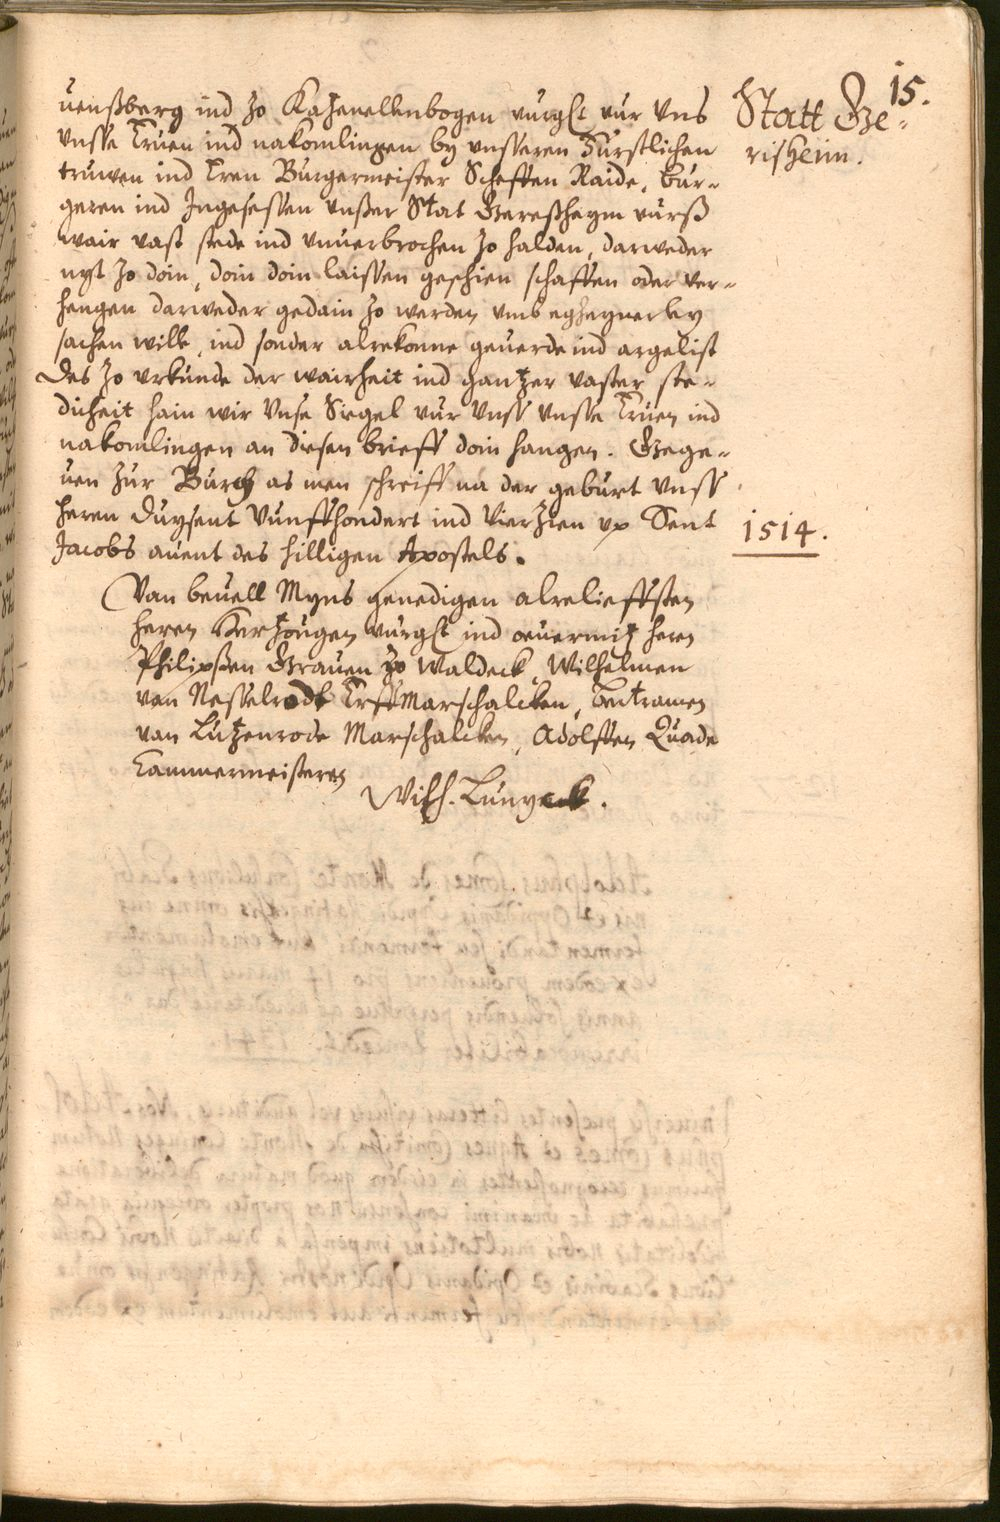 15.
Statt Ge-
risheim.
uenßberg ind zo Katzenellenbogen vurgt vur Vns
Vnsse Eruen ind nakomlingen by vnsseren Furstlichen
truwen ind Eren Burgermeister Scheffen Raide, Bur-
geren ind Ingesessen vnßer Stat Gereßheym vurß
wair vast stede ind vnuerbrochen zo halden, darweder
nyt zo doin, doin doin laissen geschien schaffen oder ver-
hengen darweder gedain zo werden vmb eygheynerley
sachen wille, ind sonder alrekonne geuerde ind argelist
Des zo vrkunde der wairheit ind gantzer vaster ste-
dicheit hain wir Vnse Siegel vur Vnss Vnsse Eruen ind
nakomlingen an diesen brieff doin hangen. Gege-
uen zur Burch as men schreiff na der geburt Vnss
heren Duysent Vunffhondert ind Vierzien vp Sent
Jacobs auent des hilligen Apostels.
1514.
Van beuell Myns genedigen alreliefften
heren Hertzougen vurgt ind ouermitz heren
Philipßen Grauen zo Waldeck, Wilhelmen
van Nesselrode Erffmarschalcken, Bertramen
van Lutzenrode Marschalcken, Adolffen Quade
Cammermeisteren
Wilh. Lunynck.